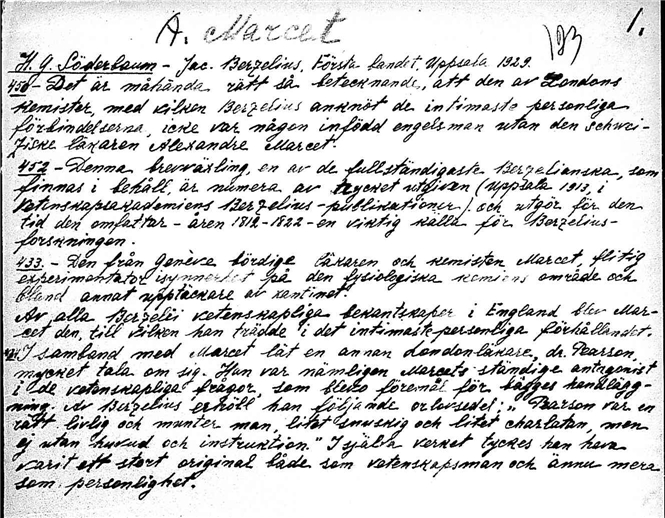 A. Marcet
193
1.
H. G. Söderbaum - Jac. Berzelius, Första bandet, Uppsala 1929.
450 - Det är måhända rätt så betecknande, att den av Londons
kemister, med vilken Berzelius anknöt de intimaste personliga
förbindelserna, icke var någon infödd engelsman utan den schwei-
ziske läkaren Alexandre Marcet.
452 - Denna brevväxling, en av de fullständigaste Berzelianska, som
finnas i behåll, är numera av trycket utgiven (Uppsala 1913, i
Vetenskapsakademiens Berzelius-publikationer) och utgör för den
tid den omfattar - åren 1812-1822 - en viktig källa för Berzelius-
forskningen.
433. - Den från Genève bördige läkaren och kemisten Marcet, flitig
experimentator isynnerhet på den fysiologiska kemiens område och
bland annat upptäckare av xantinet.
Av alla Berzelii vetenskapliga bekantskaper i England blev Mar-
cet den, till vilken han trädde i det intimaste personliga förhållandet.
I samband med Marcet lät en annan Londonläkare, dr. Pearson,
mycket tala om sig. Hun var nämligen Marcets ständige antagonist
i de vetenskapliga frågor, som blevo föremål för bägges handlägg-
ning. Av Berzelius erhöll han följande orlovsedel: „Pearson var en
rätt livlig och munter man, litet snuskig och litet charlatan, men
ej utan huvud och instruktion." I själva verket tyckes han hava
varit ett stort original både som vetenskapsman och ännu mera
som personlighet.